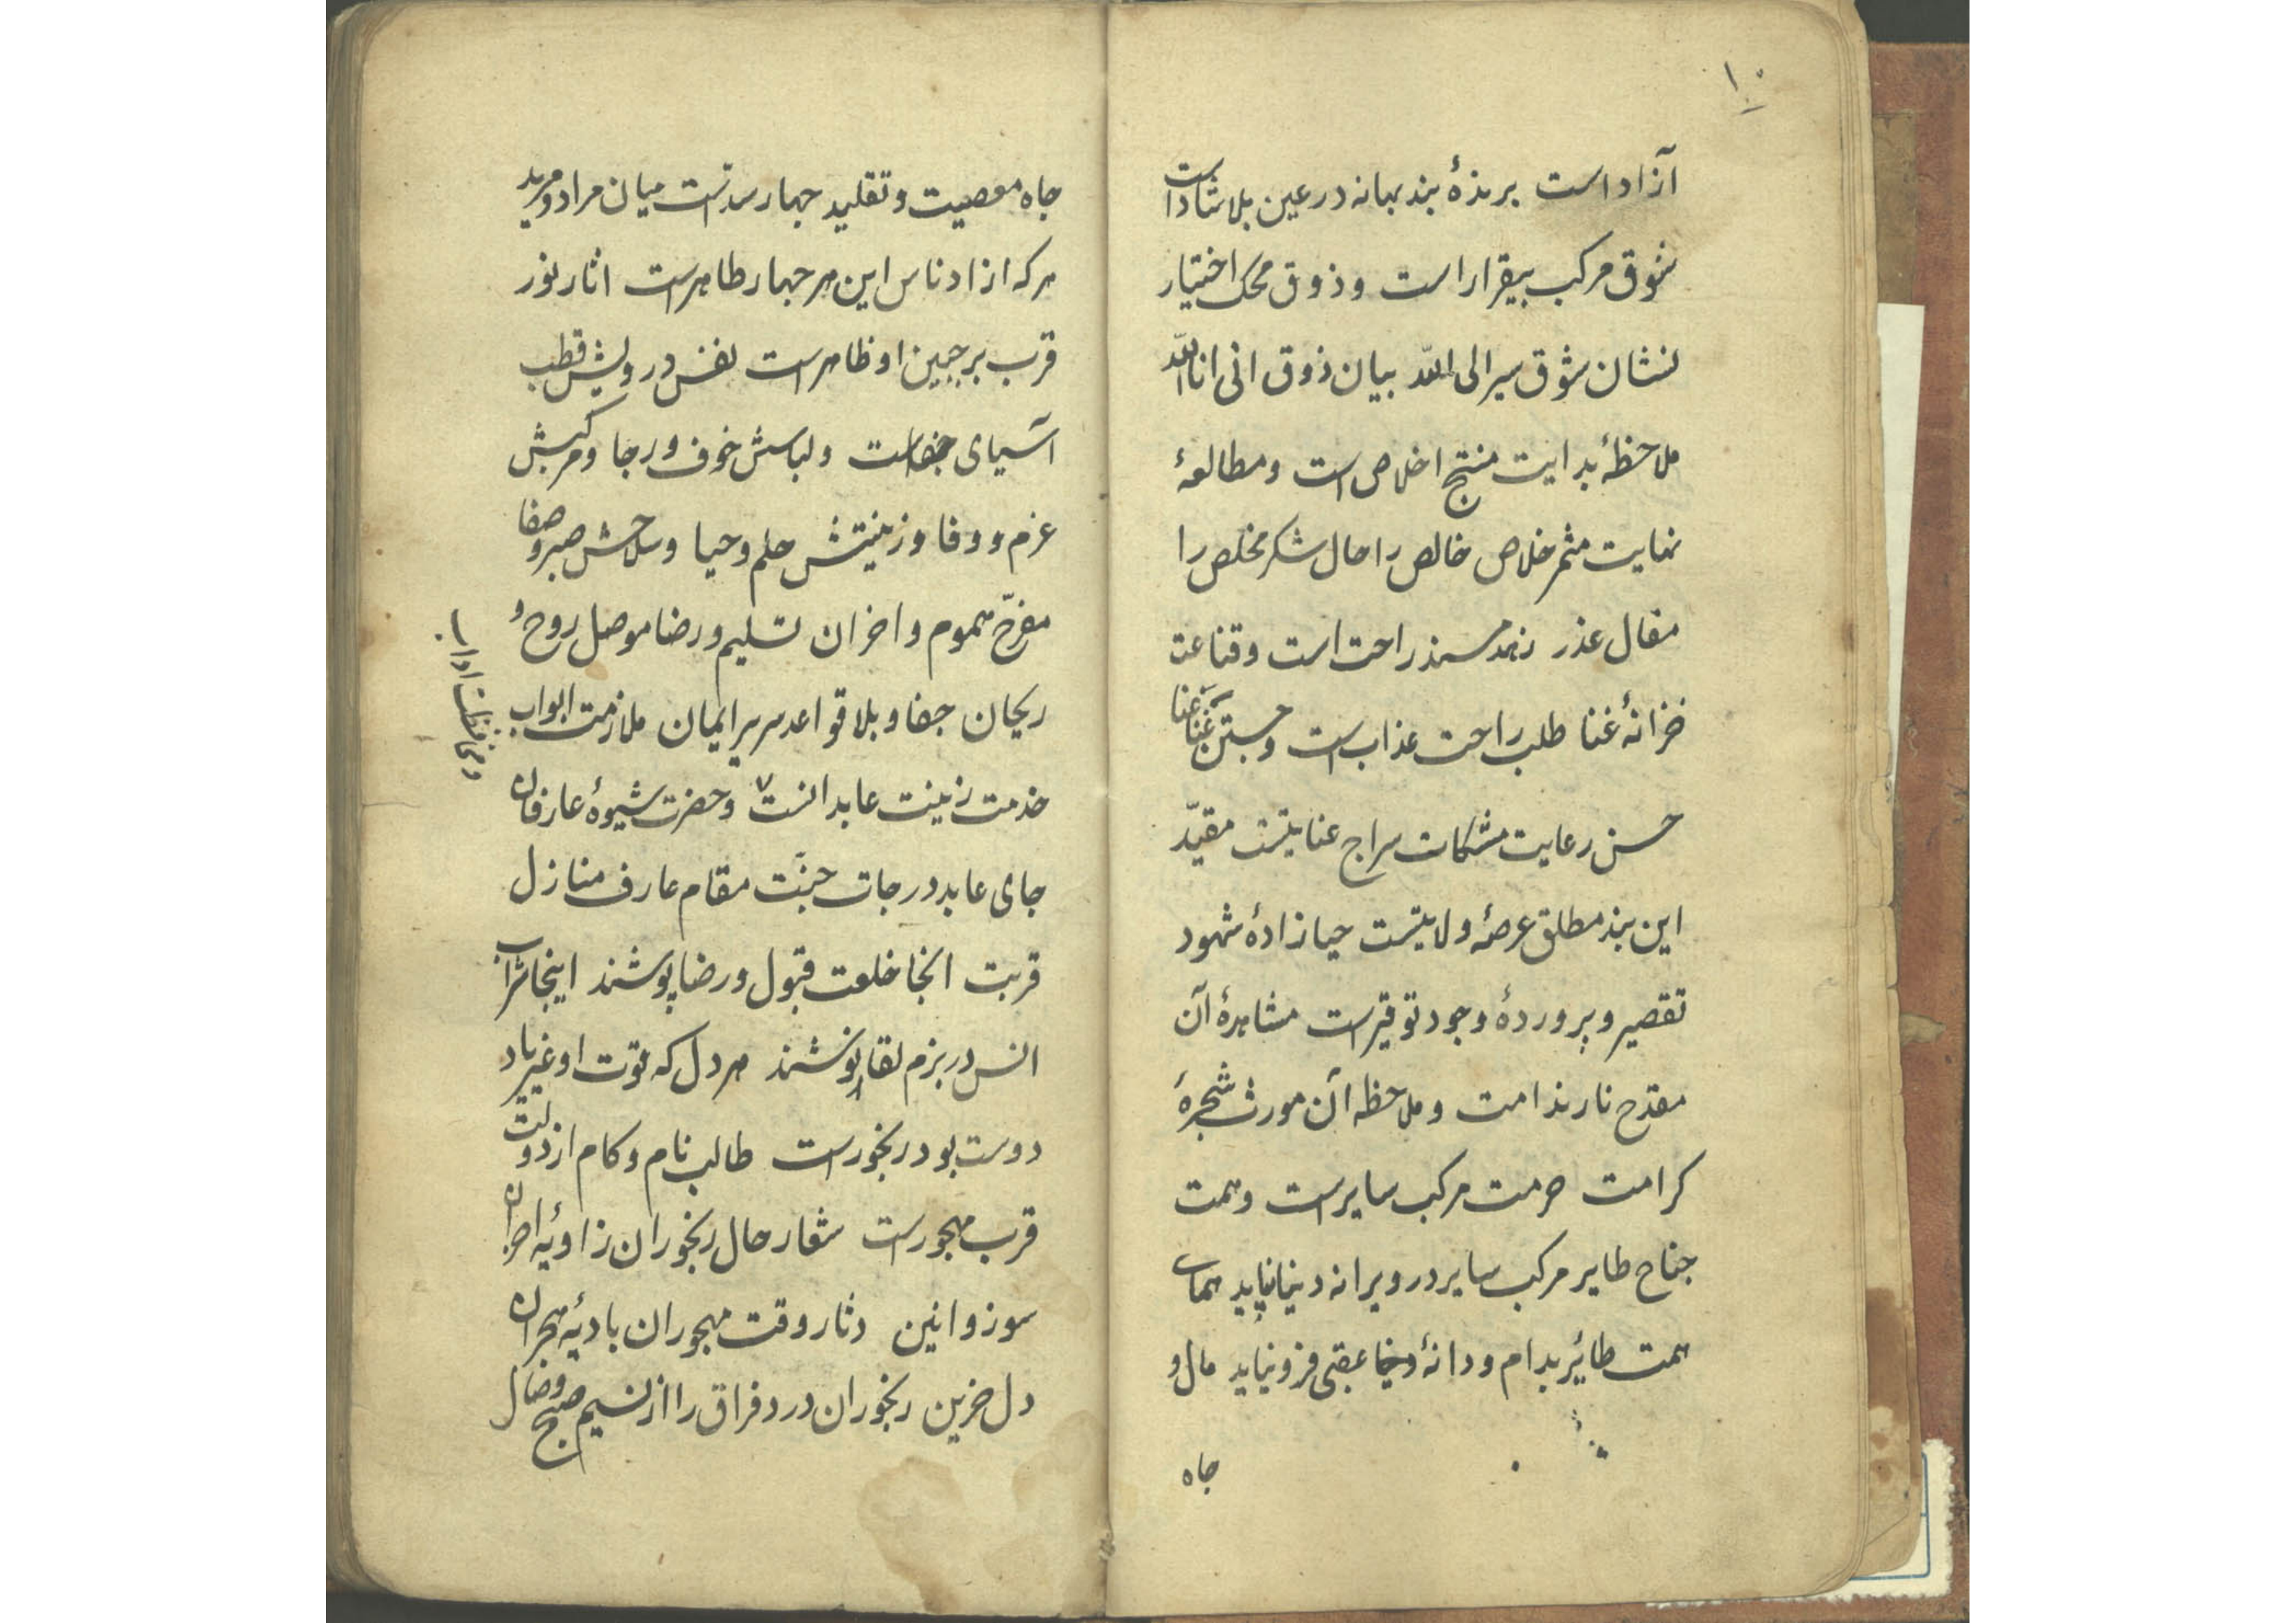 ۱۰
آزاد است برندهٔ بند بهانه در عین بلا شاد است
شوق مرکب بیقرار است و ذوق محک اختیار
نشان شوق سیر الی الله بیان ذوق انی انا الله
ملاحظهٔ بدایت منتج اخلاص است و مطالعهٔ
نهایت مثمر خلاص خالص را حال شکر مخلص را
مقال عذر زهد مسند راحت است و قناعت
خزانهٔ غنا طلب راحت عذاب است و جستن غنا عنا
حسن رعایت مشکات سراج عنایتست مقیّد
این بند مطلق عرصهٔ ولایتست حیا زادهٔ شهود
تقصیر و پروردهٔ وجود توقیرست مشاهدهٔ آن
مقدح نار ندامت و ملاحظه آن مورث شجرهٔ
کرامت حرمت مرکب سایرست و همت
جناح طایر مرکب سایر در ویرانه دنیا نپاید همای
همت طائر بدام و دانهٔ عقبی فرو نیاید مال و
جاه
جاه معصیت و تقلید چهار سدست میان مراد و مرید
هرکه از ادناس این هر چهار طاهرست اثار نور
قرب بر جبین او ظاهرست نفس درویش قطب
اسیای جفاست و لباسش خوف و رجا و مرکبش
عزم و وفا و زینتش حلم و حیا و سلاحش صبر و صفا
مفرّح هموم و احزان تسلیم و رضا موصل روح و
ریحان جفا و بلا قواعد سریر ایمان ملازمت ابواب
خدمت زینت عابدانست و حضرت شیوهٔ عارفان
و محافظت اداب
جای عابد درجات جنّت مقام عارف منازل
قربت انجا خلعت قبول و رضا پوشند اینجا شراب
انس در بزم لقا نوشند هر دل که قوت او غیر یاد
دوست بود رنجورست طالب نام و کام از دولت
قرب مهجورست شعار حال رنجوران زاویهٔ احزان
سوز و انین دثار وقت مهجوران بادیهٔ هجران
دل حزین رنجوران درد فراق را از نسیم صبح وصال